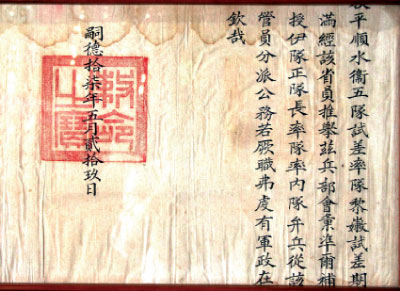 平順水衛五隊試差率隊黎試差期
滿經該省員推舉茲兵部會彙準爾補
授伊隊正隊長率內隊弁兵從該
管員分派公務若厥職弗虔有軍政在
欽哉
嗣德拾柒年五月貳拾玖日
敕命之寶